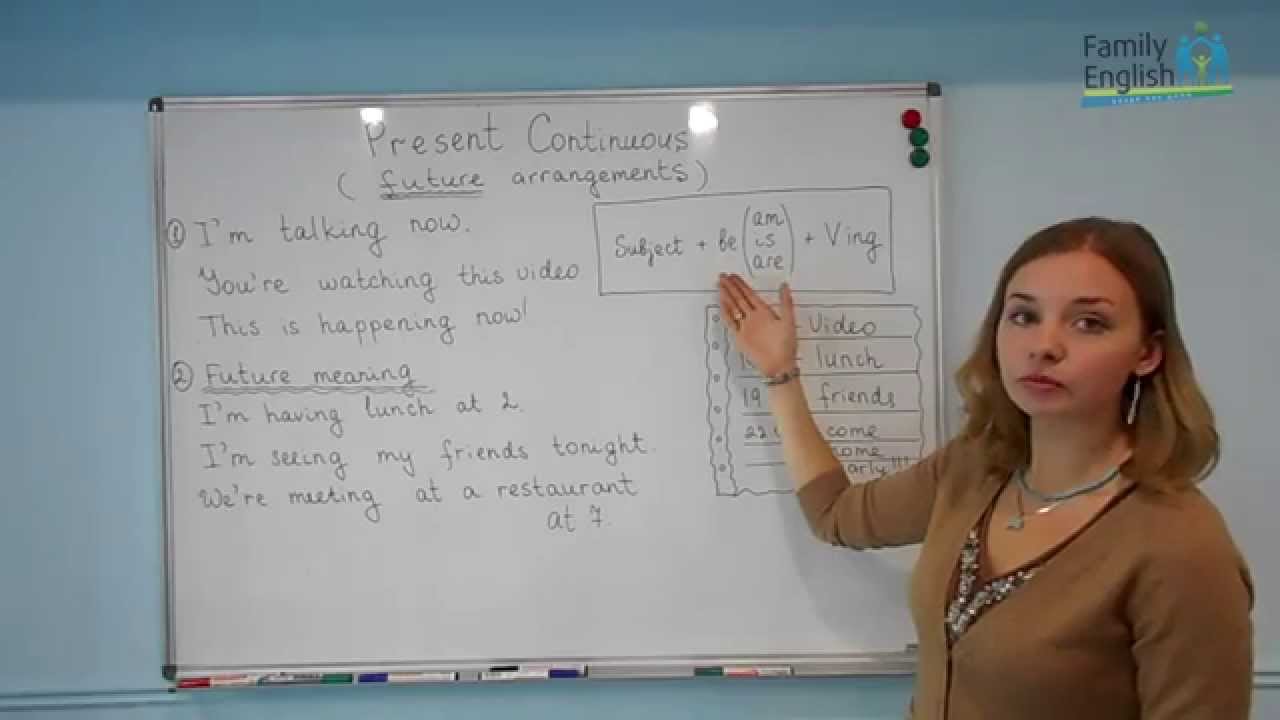 Family
English
Present Continuous
( future arrangements )
① I'm talking now.
You're watching this video
This is happening now!
② Future meaning
I'm having lunch at 2.
I'm seeing my friends tonight.
We're meeting at a restaurant
at 7.
Subject + be ( am is are ) + Ving
Video
lunch
19 friends
22 come
home